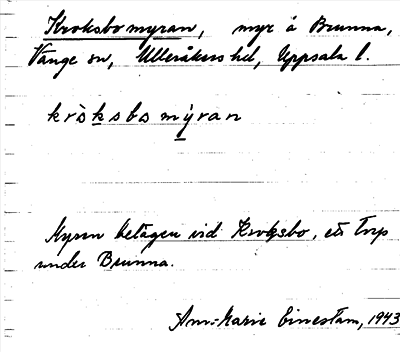 Kroksbomyran, myr å Brunna,
Vänge sn, Ulleråkers hd, Uppsala l.
kròksbomýran
Myren belägen vid Kroksbo, ett torp
under Brunna.
Ann-Marie Einestam, 1943